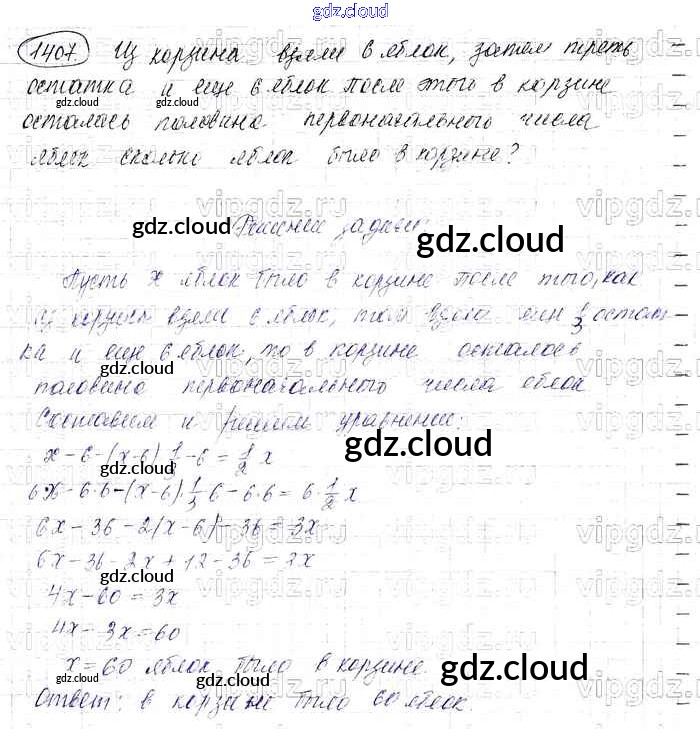 gdz.cloud
1407. Из корзина взяли 6 яблок, затем треть
остатка и еще 6 яблок после этого в корзине
gdz.cloud gdz.cloud
осталось половина первоначального числа
яблок сколько яблок было в корзине?
vipgdz.
gdz.cloud Решение задачи:
gdz.cloud
Пусть x яблок было в корзине после того, как
из корзины взяли 6 яблок, 1/3 остат-
ка и еще 6 яблок, то в корзине осталось
половина первоначального числа яблок
Составим и решим уравнение:
gdz.cloud
x - 6 - (x-6) 1/3 - 6 = 1/2 x
gdz.cloud
6x - 6·6 - (x-6)·1/3·6 - 6·6 = 6·1/2 x
6x - 36 - 2(x-6) - 36 = 3x
6x - 36 - 2x + 12 - 36 = 3x
gdz.cloud
4x - 60 = 3x
4x - 3x = 60
x = 60 яблок было в корзине
gdz.cloud gdz.cloud
Ответ: в корзине было 60 яблок.